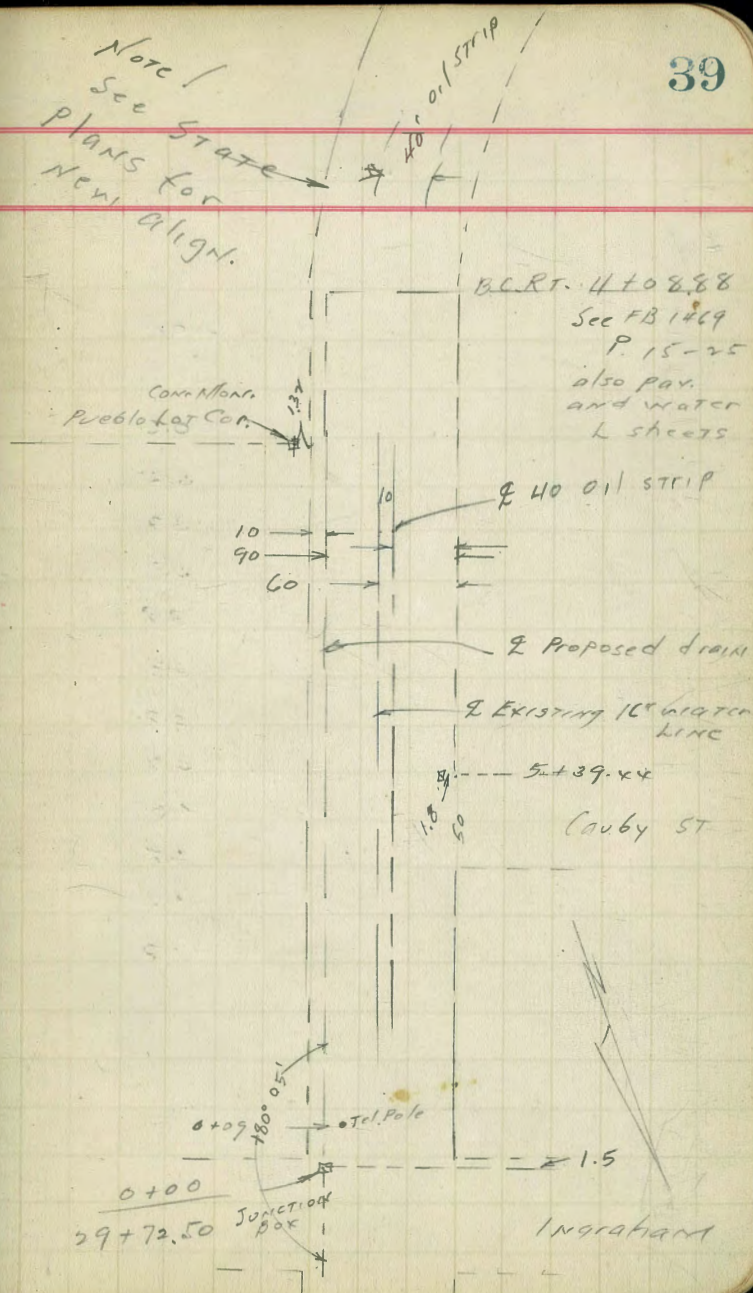 39
Note!
See State
plans for
New align.
40' oil strip
B.C.RT. 4+08.88
See FB 1469
P. 15-25
also pav.
and water
L sheets
Con. Mon.
Pueblo Lot Cor.
1.32
10
℄ 40 oil strip
10
90
60
℄ Proposed drain
℄ Existing 16" water
Line
5+39.44
1.8
50
Couby ST
180° 05'
0+09
Tel. Pole
1.5
0+00
29+72.50
Junction
Box
Ingraham